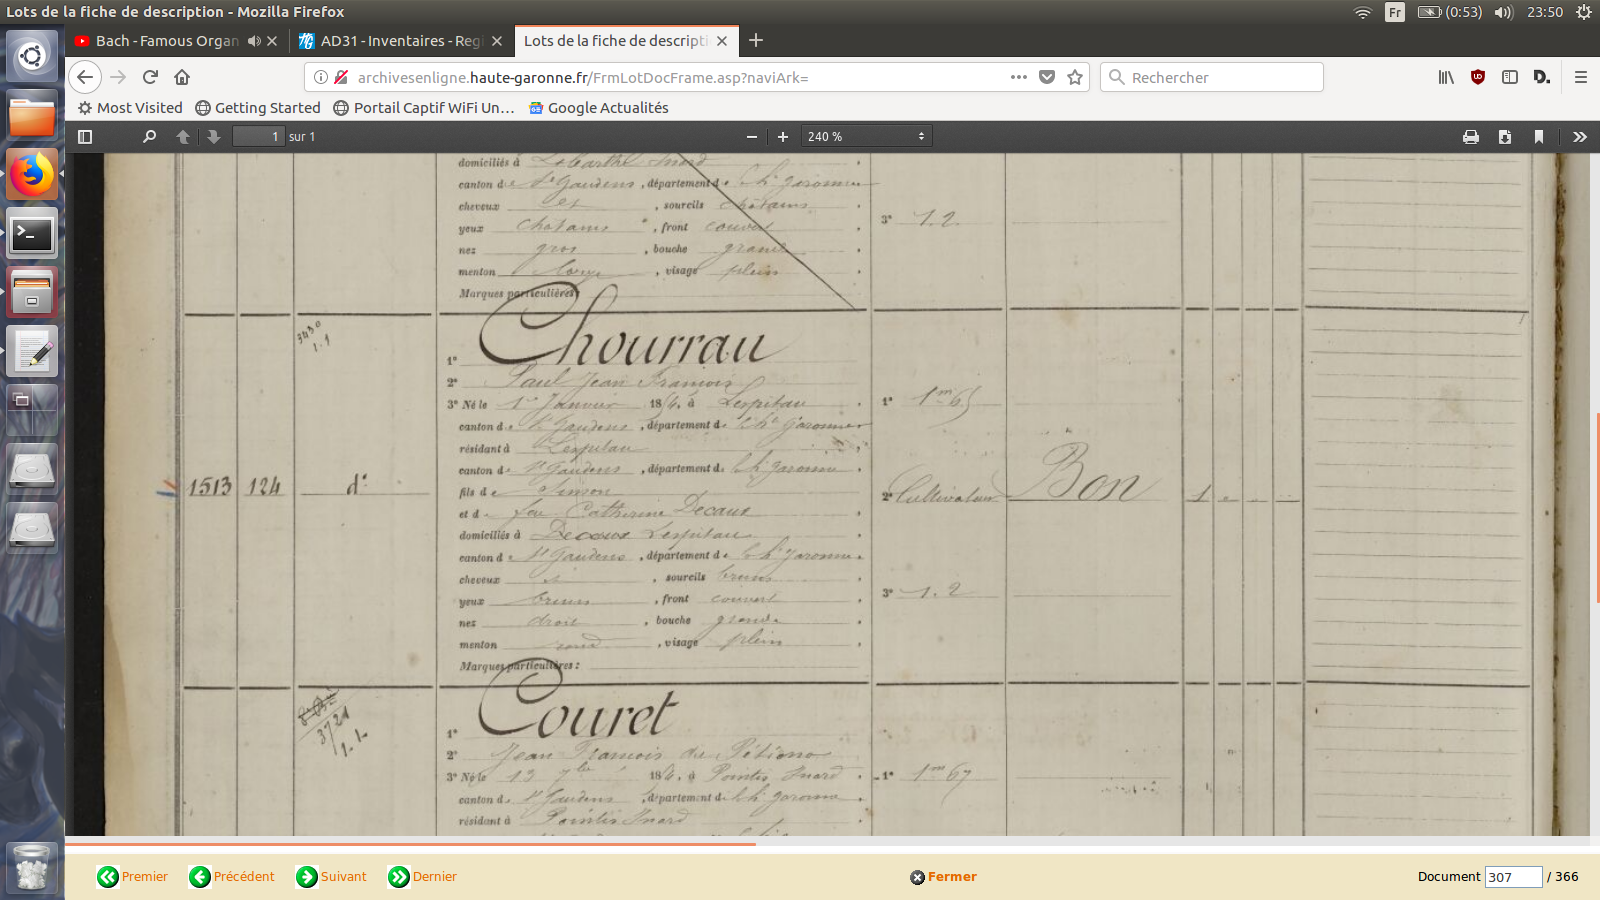 Lots de la fiche de description - Mozilla Firefox
Fr
(0:53)
23:50
Bach - Famous Organ
AD31 - Inventaires - Regi
Lots de la fiche de descripti
archivesenligne.haute-garonne.fr/FrmLotDocFrame.asp?naviArk=
Rechercher
Most Visited
Getting Started
Portail Captif WiFi Un…
Google Actualités
1 sur 1
240 %
domiciliés à Labarthe Inard
canton de St Gaudens, département de hte garonne
cheveux et, sourcils châtains
yeux chatains, front couvert
nez gros, bouche grande
menton, visage plein
Marques particulières:
3° 1.2.
3430
1.1
1° Chourrau
2° Paul Jean François
3° Né le 1er Janvier 1854, à Lespitau
canton de St Gaudens, département de hte Garonne
résidant à Lespitau
canton de St Gaudens, département de hte garonne
fils de Simon
et de feu Catherine Decaux
domiciliés à Decaux Lespitau
canton de St Gaudens, département de hte garonne
cheveux et, sourcils bruns
yeux bruns, front couvert
nez droit, bouche grande
menton rond, visage plein
Marques particulières:
1513 124 d°
1° 1m65
2° Cultivateur Bon 1
3° 1.2
3721
1.1.
1° Couret
2° Jean François dit
3° Né le 13 7bre 1854, à Pointis Inard
canton de St Gaudens, département de hte garonne
résidant à Pointis Inard
1° 1m67
Premier
Précédent
Suivant
Dernier
Fermer
Document 307 / 366